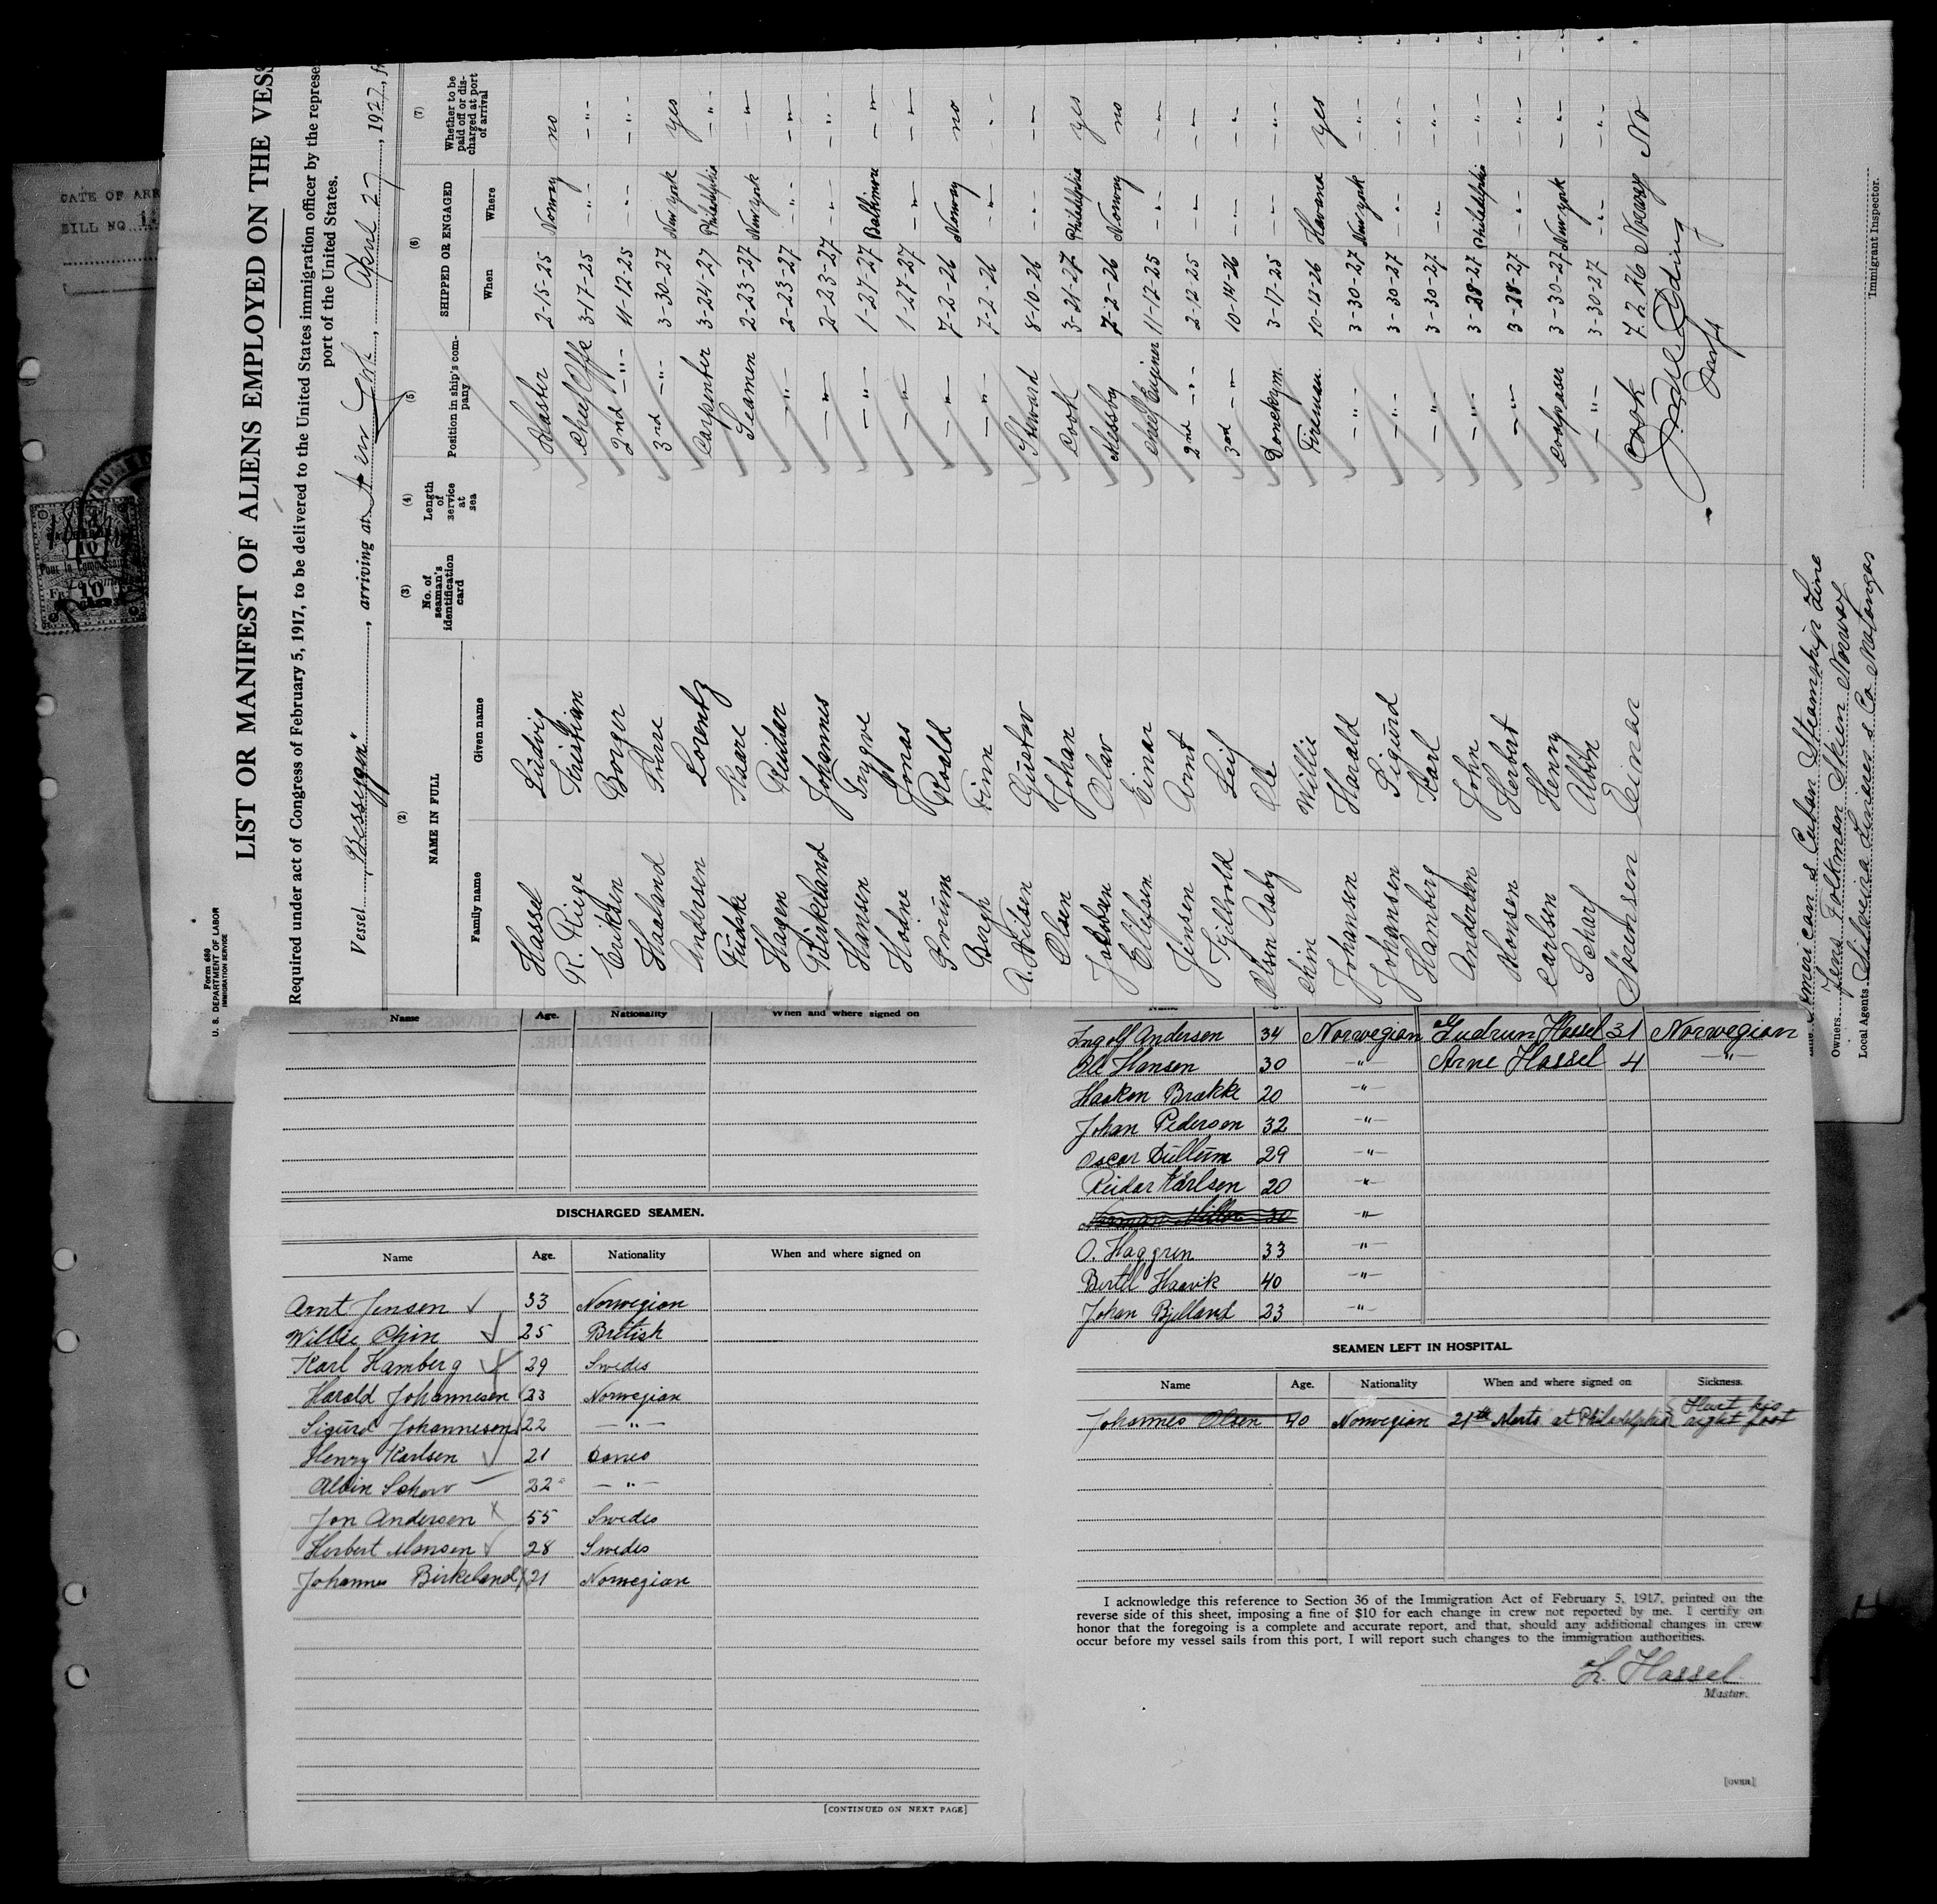 DATE OF ARR
BILL NO
10
Pour la
FR 10
Form 680
U. S. DEPARTMENT OF LABOR
IMMIGRATION SERVICE
LIST OR MANIFEST OF ALIENS EMPLOYED ON THE VESS
Required under act of Congress of February 5, 1917, to be delivered to the United States immigration officer by the represe
port of the United States.
Vessel "Bessegen", arriving at April 27, 1927, fr
(2) (3) (4) (5) (6) (7)
NAME IN FULL No. of seaman's identification card Length of service at sea Position in ship's company SHIPPED OR ENGAGED Whether to be paid off or discharged at port of arrival
Family name Given name When Where
Hassel Ludvig Master 2-15-25 Norway no
R. Riege Kristian Cheef Offe 3-17-25 -"- -"-
Eriksen Borger 2nd -"- 11-12-25 -"- -"-
Haaland 3rd -"- 3-30-27 New York yes
Andersen Lorentz Carpenter 3-24-27 Philadelphia -"-
Kaare Seamen 2-23-27 New York -"-
Hagen Reidar -"- 2-23-27 -"- -"-
Birkeland Johannes -"- 2-23-27 -"- -"-
Hansen Trygve -"- 1-27-27 Baltimore -"-
Hodne Jonas -"- 1-27-27 -"- -"-
Roald -"- 7-2-26 Norway no
Borgh Finn -"- 7-2-26 -"- -"-
A. Nilsen Gustav Steward 8-10-26 -"- -"-
Olsen Johan Cook 3-21-27 Philadelphia yes
Jakobsen Olav Messby 7-2-26 Norway no
Eilefsen Einar Cheef Enginer 11-12-25 -"- -"-
Jensen Arnt 2nd -"- 2-12-25 -"- -"-
Fjellvold Leif 3rd -"- 10-14-26 -"- -"-
Olsen Aaby Ole Donckym. 3-17-25 -"- -"-
Chin Willie Fireman 10-13-26 Havana yes
Johansen Harald -"- 3-30-27 New York -"-
Johansen Sigurd -"- 3-30-27 -"- -"-
Hamberg Karl -"- 3-30-27 -"- -"-
Andersen John -"- 3-28-27 Philadelphia -"-
Monsen Herbert -"- 3-28-27 -"- -"-
Carlsen Henry Coalpaser 3-30-27 New York -"-
Scharf Albin -"- 3-30-27 -"- -"-
Sörensen Einar Cook 7.2.26 Norway No
Immigrant Inspector.
American & Cuban Steamship Line
Owners Jens Folkman Skien Norway
Local Agents Silveira Linares & Co Matanzas
Name Age. Nationality When and where signed on
DISCHARGED SEAMEN.
Name Age. Nationality When and where signed on
Arnt Jensen 33 Norwegian
Willie Chin 25 British
Karl Hamberg 29 Swedes
Harald Johannesen 23 Norwegian
Sigurd Johannesen 22 -"-
Henry Karlsen 21 Danes
Albin Scharv 22 -"-
Jon Andersen 55 Swedes
Herbert Monsen 28 Swedes
Johannes Birkeland 21 Norwegian
[CONTINUED ON NEXT PAGE]
Ingolf Andersen 34 Norwegian Gudrun Hassel 31 Norwegian
Ole Hansen 30 -"- Arne Hassel 4 -"-
Haakon Brakke 20 -"-
Johan Pedersen 32 -"-
Oscar Dullum 29 -"-
Reidar Karlsen 20 -"-
30 -"-
O. Haggren 33 -"-
Bertel Haavik 40 -"-
Johan Bjelland 23 -"-
SEAMEN LEFT IN HOSPITAL
Name Age. Nationality When and where signed on Sickness.
Johannes Olsen 40 Norwegian 21th Marts at Philadelphia Hurt his right foot
I acknowledge this reference to Section 36 of the Immigration Act of February 5, 1917, printed on the
reverse side of this sheet, imposing a fine of $10 for each change in crew not reported by me. I certify on
honor that the foregoing is a complete and accurate report, and that, should any additional changes in crew
occur before my vessel sails from this port, I will report such changes to the immigration authorities.
L. Hassel
Master.
[OVER]